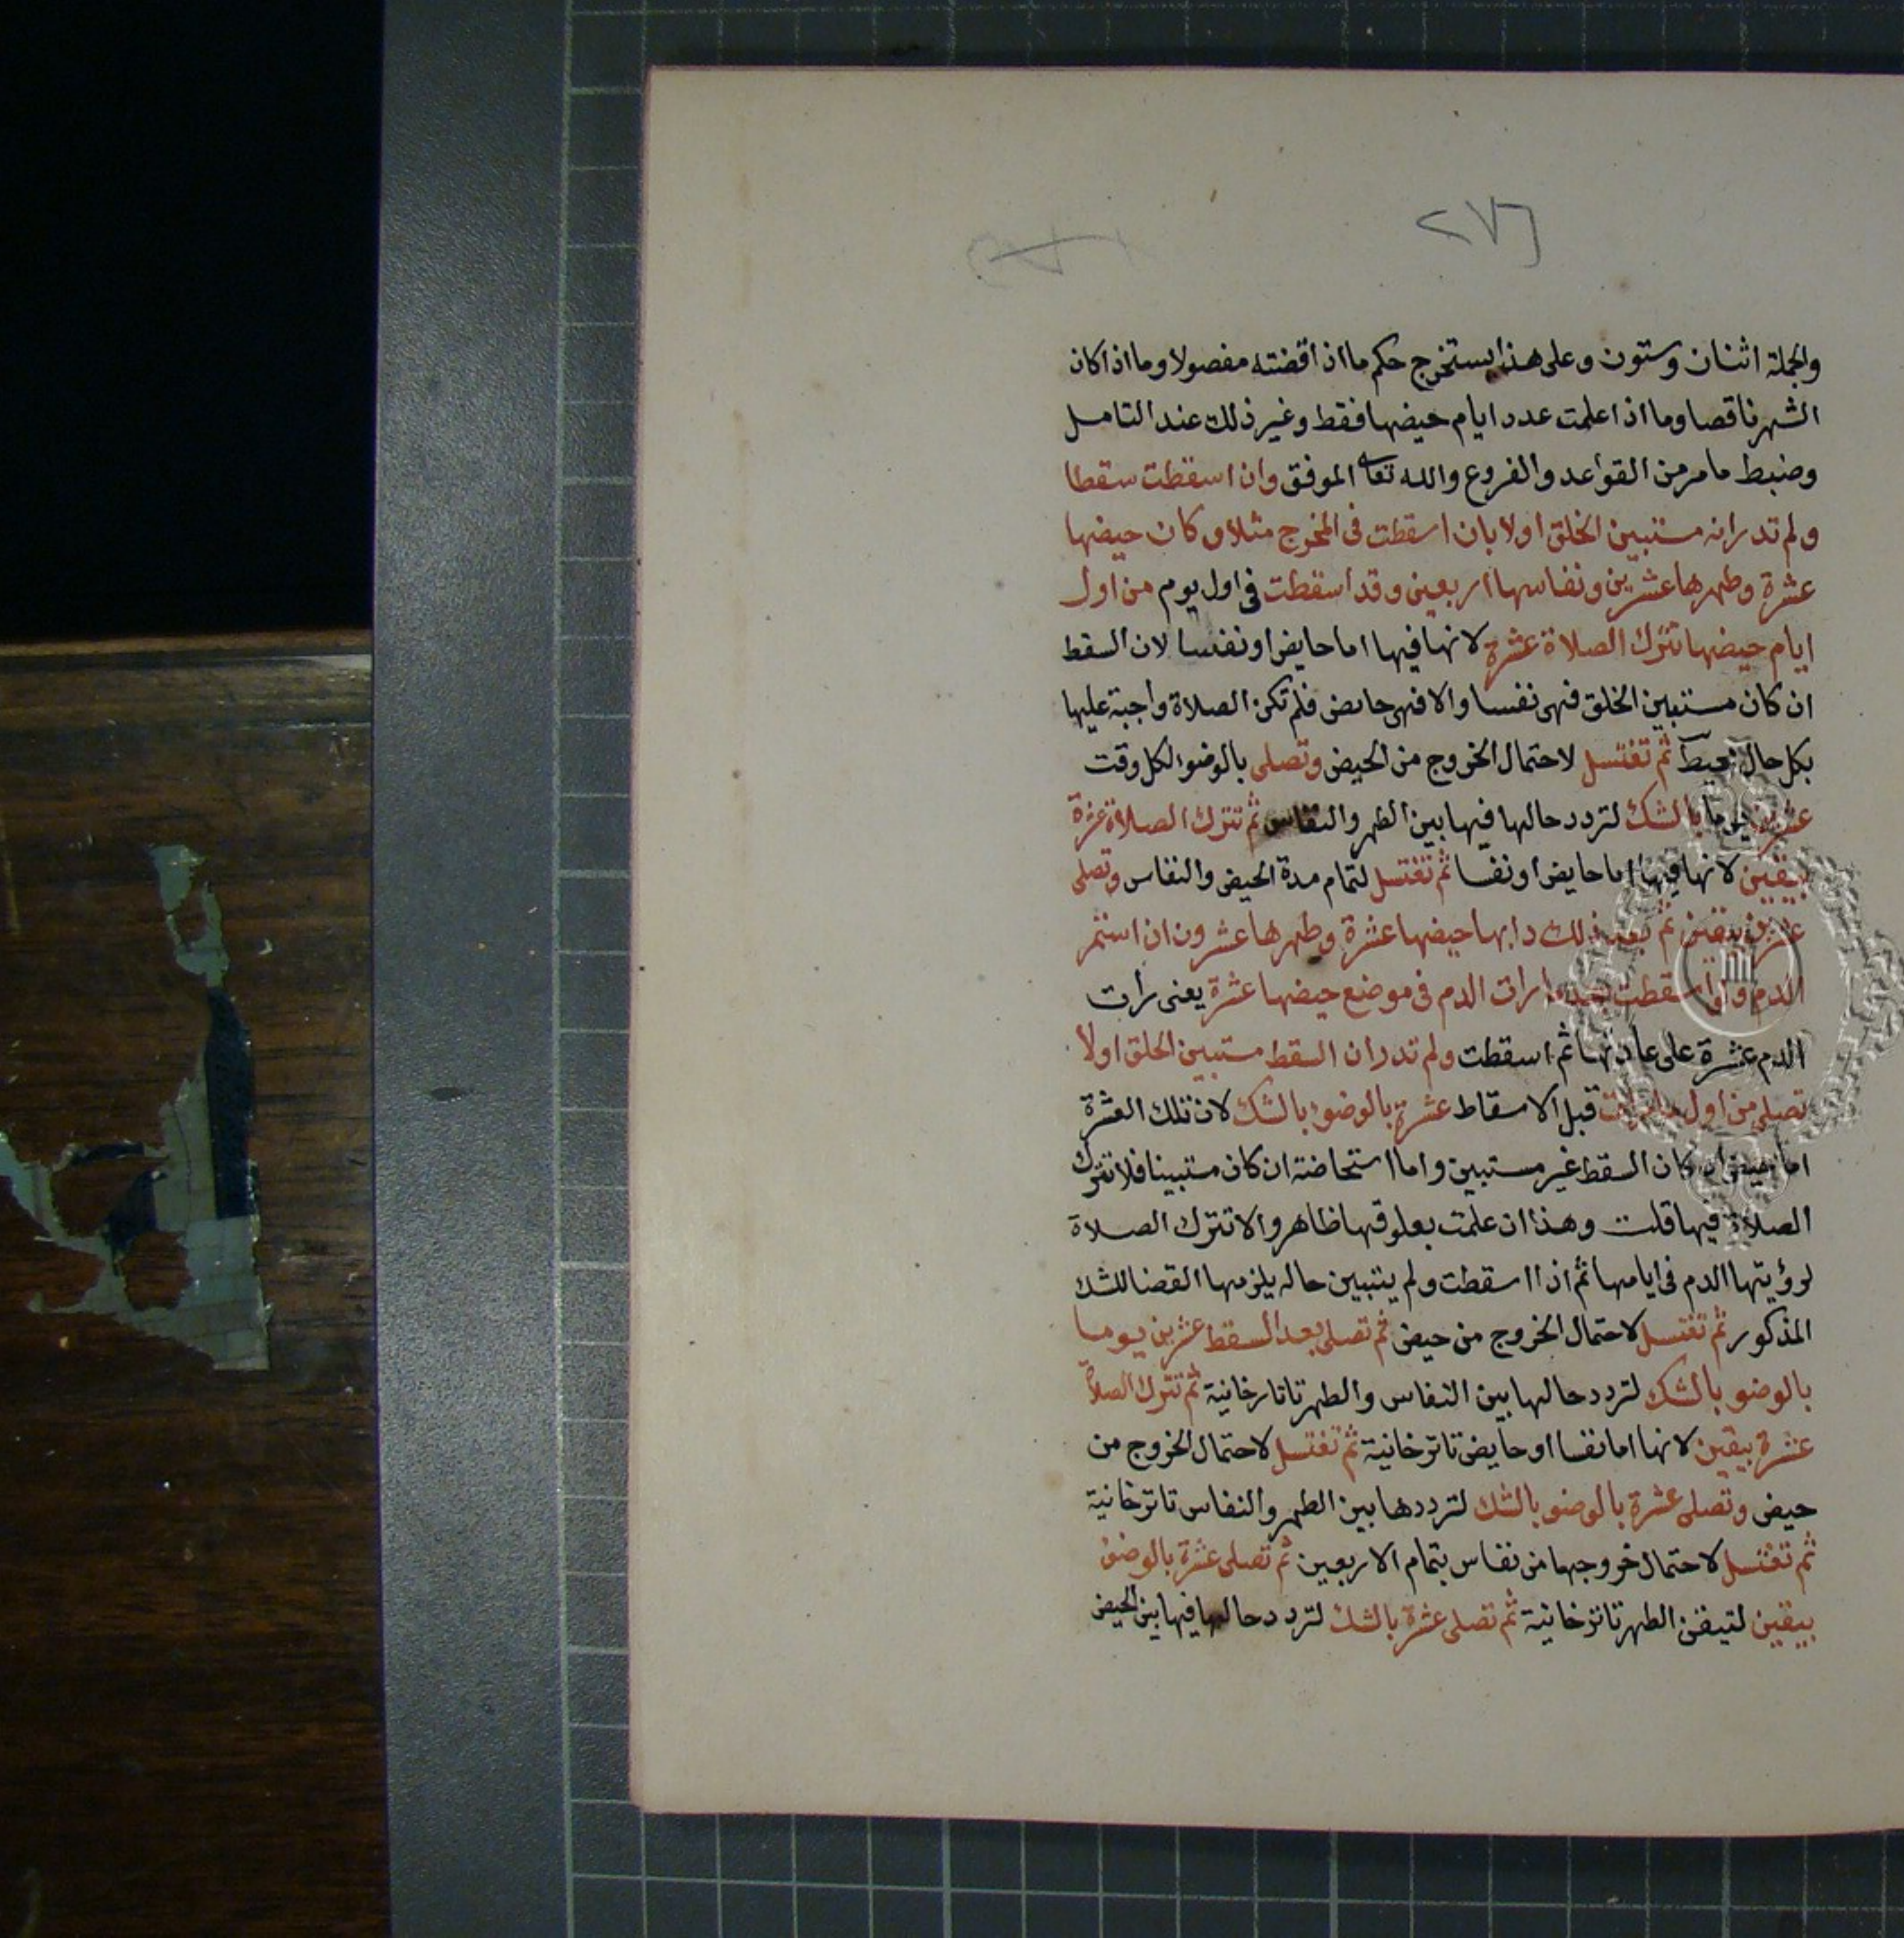 ٢٧٦
والجملة اثنان وستون وعلى هذا يستخرج حكم ما اذا قضته مفصولا وما اذا كان
الشهر ناقصا وما اذا علمت عدد ايام حيضها فقط وغير ذلك عند التامل
وضبط ما مر من القواعد والفروع والله تعالى الموفق وان اسقطت سقطا
ولم تدر انه مستبين الخلق او لا بان اسقطت فى المخرج مثلا وكان حيضها
عشرة وطهرها عشرين ونفاسها اربعين وقد اسقطت فى اول يوم من اول
ايام حيضها تترك الصلاة عشرة لانها فيها اما حايض او نفسا لان السقط
ان كان مستبين الخلق فهى نفسا والا فهى حائض فلم تكن الصلاة واجبة عليها
بكل حال محيط ثم تغتسل لاحتمال الخروج من الحيض وتصلى بالوضوء لكل وقت
عشرين يوما بالشك لتردد حالها فيها بين الطهر والنفاس ثم تترك الصلاة عشرة
بيقين لانها فيها اما حايض او نفسا ثم تغتسل لتمام مدة الحيض والنفاس وتصلى
عشرين بيقين ثم بعد ذلك دابها حيضها عشرة وطهرها عشرون ان استمر
الدم ولو اسقطت بعدما رات الدم فى موضع حيضها عشرة يعنى رات
الدم عشرة على عادتها ثم اسقطت ولم تدر ان السقط مستبين الخلق او لا
تصلى من اول ما رات قبل الاسقاط عشرة بالوضوء بالشك لان تلك العشرة
اما حيض ان كان السقط غير مستبين واما استحاضة ان كان مستبينا فلا تترك
الصلاة فيها قلت وهذا ان علمت بعلوقها ظاهر والا تترك الصلاة
لرؤيتها الدم فى ايامها ثم اذا اسقطت ولم يتبين حاله يلزمها القضا للشك
المذكور ثم تغتسل لاحتمال الخروج من حيض ثم تصلى بعد السقط عشرين يوما
بالوضو بالشك لتردد حالها بين النفاس والطهر تاتارخانية ثم تترك الصلاة
عشرة بيقين لانها اما نفسا او حايض تاترخانية ثم تغتسل لاحتمال الخروج من
حيض وتصلى عشرة بالوضو بالشك لترددها بين الطهر والنفاس تاترخانية
ثم تغتسل لاحتمال خروجها من نفاس بتمام الاربعين ثم تصلى عشرة بالوضوء
بيقين لتيقن الطهر تاترخانية ثم تصلى عشرة بالشك لتردد حالها فيها بين الحيض